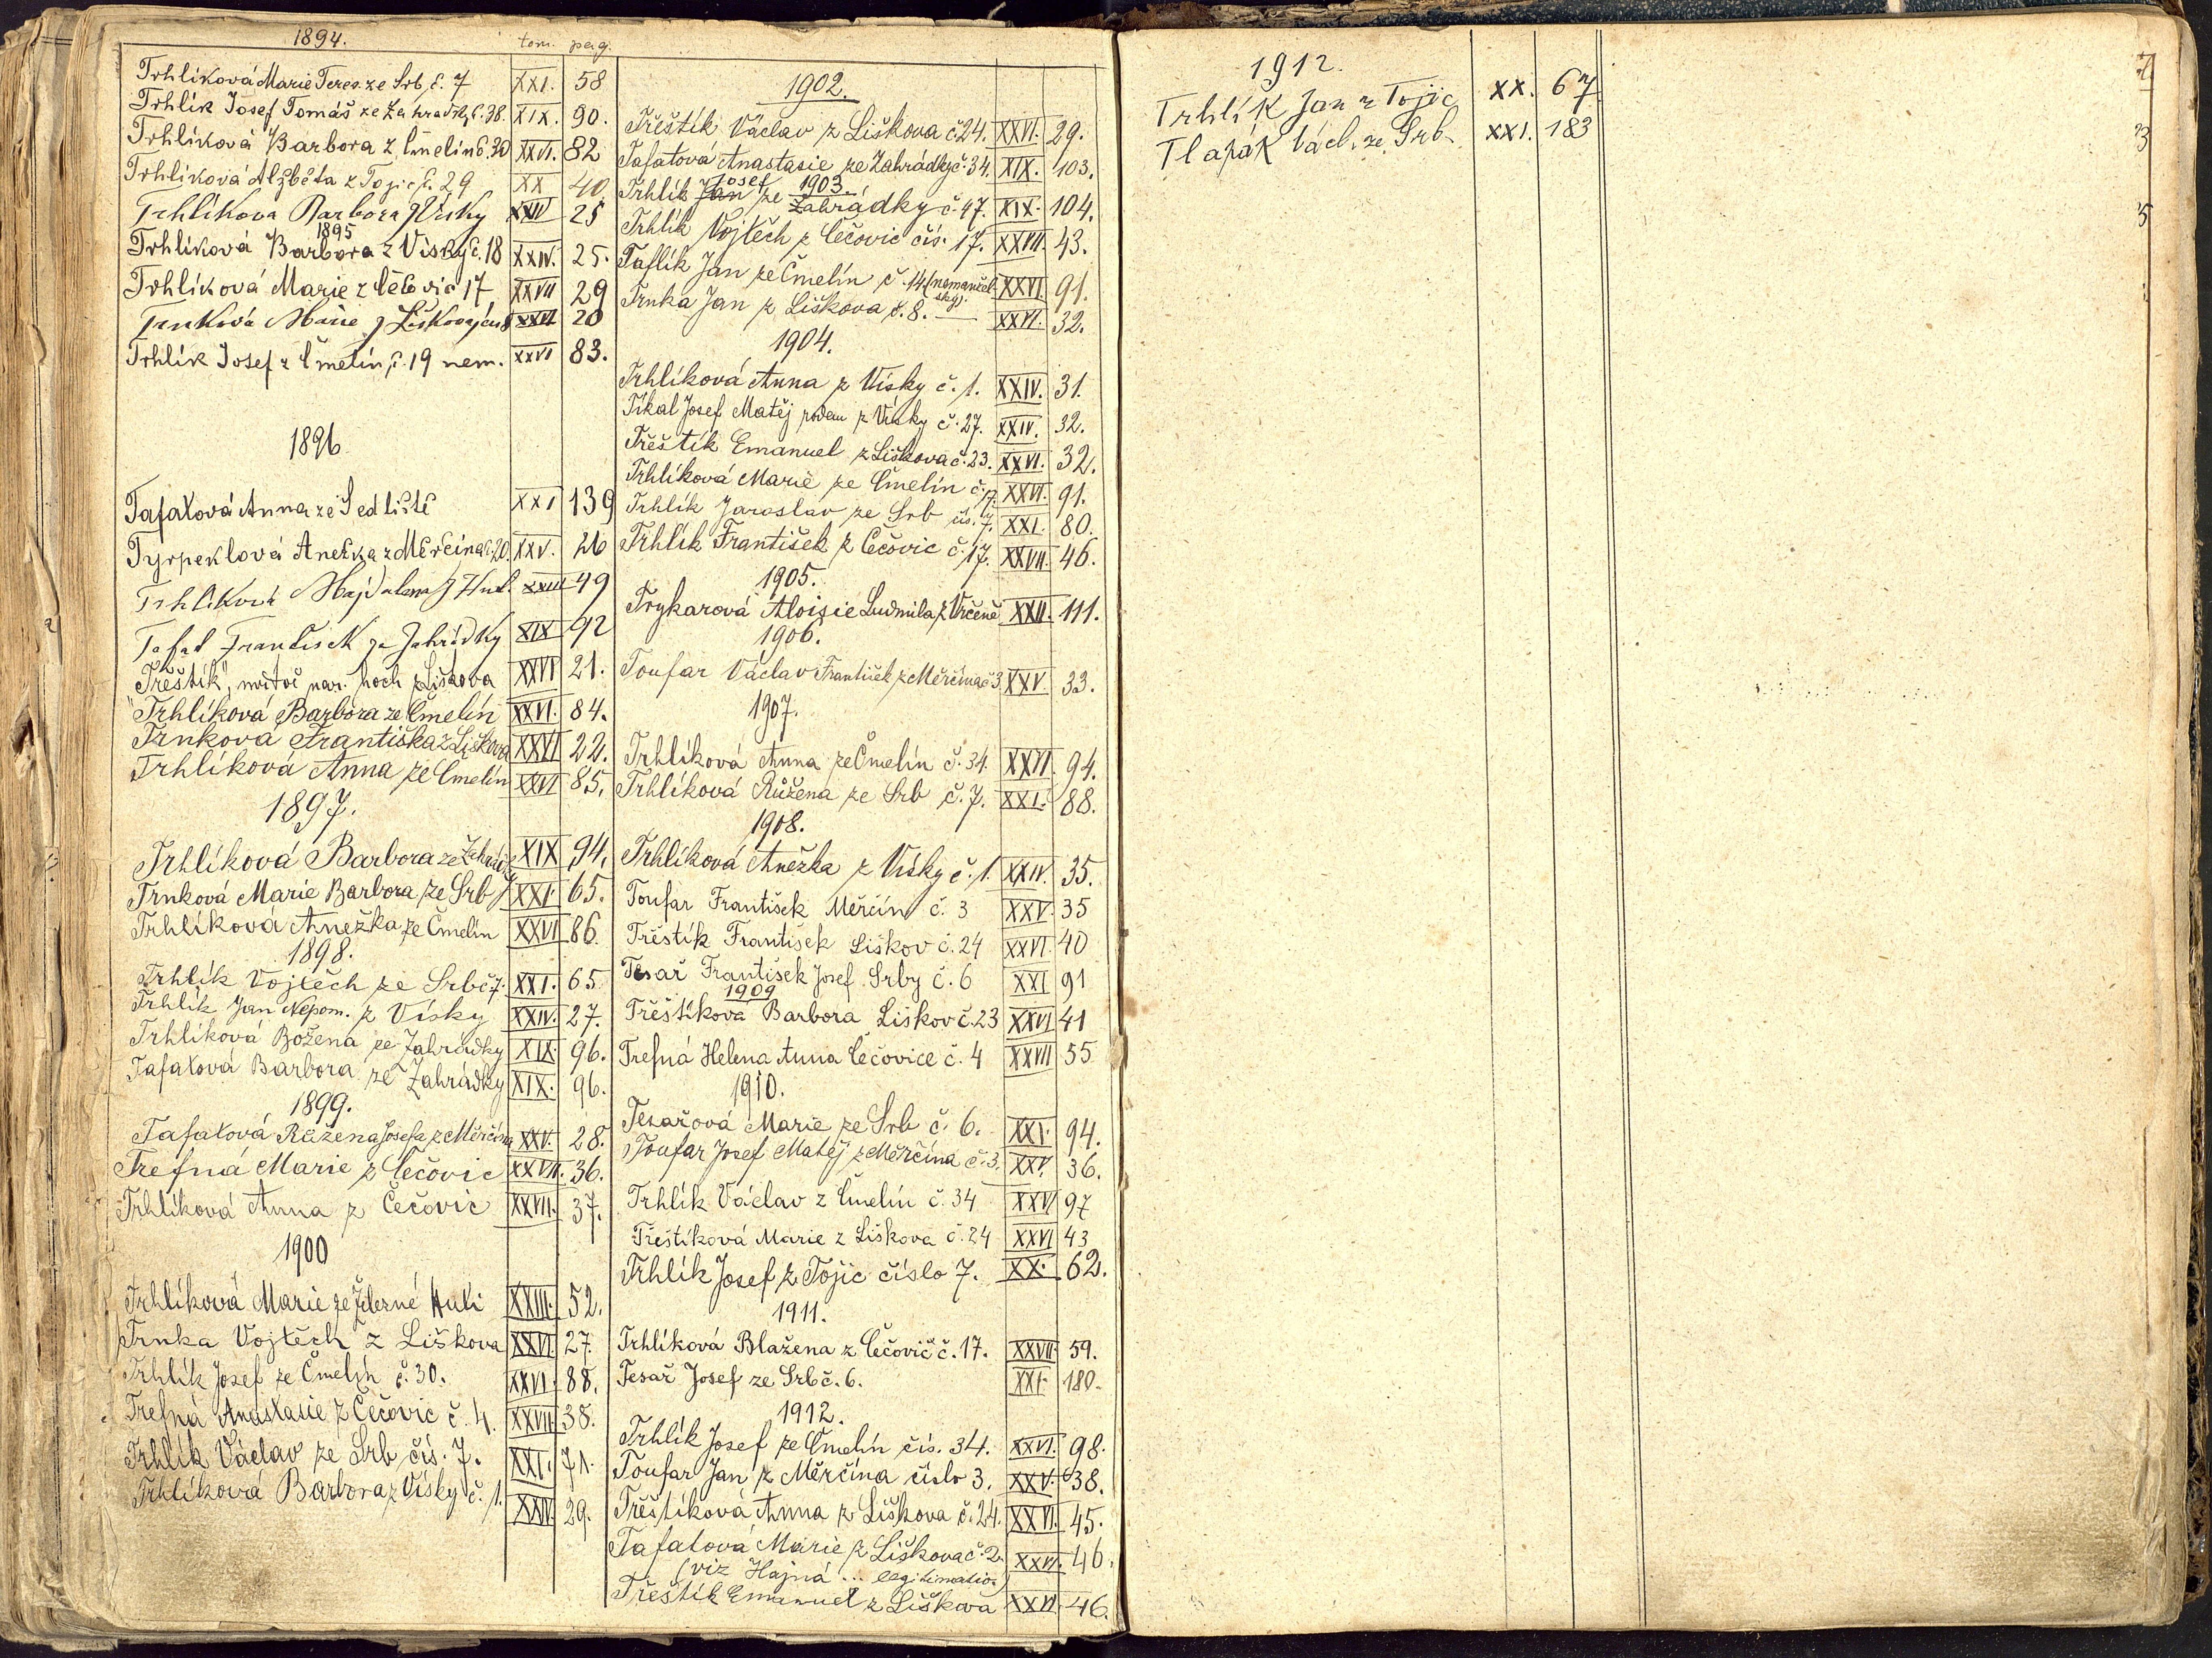 1894. tom. pag.
Trhlíková Marie Teres. ze Srb č. 7 XXI. 58
Trhlík Josef Tomáš ze Zahrádky č. 38. XIX. 90.
Trhlíková Barbora z Čmelín č. 30 XXVI. 82
Trhlíková Alžběta z Tojic č. 29 XX 40
Trhlíkova Barbora z Vísky XXIV 25
1895
Trhlíková Barbora z Vísky č. 18 XXIV. 25.
Trhlíková Marie z Čečovic 17 XXVII 29
Trnková Marie z Liškova čís 8 XXVI 20
Trhlík Josef z Čmelín, č. 19 nem. XXVI 83.
1896
Tafatová Anna ze Sedliště XXI 139
Tyrpeklová Anežka z Měrčína č. 20. XXV. 26
Trhlíková Majdalena z Hut. XXIII 49
Tafat František ze Zahrádky XIX 92
"Třeštík", mrtvě nar. hoch z Liškova XXVI 21.
Trhlíková Barbora ze Čmelín XXVI. 84.
Trnková Františka z Liškova XXVI 22.
Trhlíková Anna ze Čmelín XXVI 85.
1897.
Trhlíková Barbora ze Zahrádky XIX 94.
Trnková Marie Barbora ze Srb XXI 65.
Trhlíková Anežka ze Čmelín XXVI 86.
1898.
Trhlík Vojtěch ze Srb č 7. XXI. 65
Trhlík Jan Nepom. z Vísky XXIV. 27.
Trhlíková Božena ze Zahrádky XIX. 96.
Tafatová Barbora ze Zahrádky XIX. 96.
1899.
Tafatová Růžena Josefa z Měrčína XXV. 28.
Trefná Marie z Čečovic XXVII. 36.
Trhlíková Anna z Čečovic XXVII. 37.
1900
Trhlíková Marie ze Železné Huti XXIII. 52.
Trnka Vojtěch z Liškova XXVI. 27.
Trhlík Josef ze Čmelín č. 30. XXVI. 88.
Trefná Anastasie z Čečovic č. 4. XXVII. 38.
Trhlík Václav ze Srb čís. 7. XXI. 71.
Trhlíková Barbora z Vísky č. 1. XXIV. 29.
1902.
Třeštík Václav z Liškova č 24. XXVI. 29.
Tafatová Anastasie ze Zahrádky č 34. XIX. 103.
Josef 1903.
Trhlík Jan ze Zahrádky č. 47. XIX. 104.
Trhlík Vojtěch z Čečovic čís. 17. XXVII. 43.
Taflík Jan ze Čmelín č. 14 (nemanžel- XXVI. 91.
ský).
Trnka Jan z Liškova č. 8. — XXVI. 32.
1904.
Trhlíková Anna z Vísky č. 1. XXIV. 31.
Tikal Josef Matěj rodem z Vísky č. 27. XXIV. 32.
Třeštík Emanuel z Liškova č. 23. XXVI. 32.
Trhlíková Marie ze Čmelín č. 17. XXVI. 91.
Trhlík Jaroslav ze Srb čís. 7. XXI. 80.
Trhlík František z Čečovic č. 17. XXVII. 46.
1905.
Trykarová Aloisie Ludmila z Vrčeně XXII. 111.
1906.
Toufar Václav František z Měrčína č 3 XXV. 33.
1907.
Trhlíková Anna ze Čmelín č. 34. XXVI. 94.
Trhlíková Růžena ze Srb č. 7. XXI. 88.
1908.
Trhlíková Anežka z Vísky č. 1. XXIV. 35.
Toufar František Měrčín č. 3 XXV. 35
Třeštík František Liškov č. 24 XXVI. 40
Tesař František Josef Srby č. 6 XXI 91
1909
Třeštíková Barbora Liškov č. 23 XXVI 41
Trefná Helena Anna Čečovice č. 4 XXVII 55
1910.
Tesařová Marie ze Srb č. 6. XXI. 94.
Toufar Josef Matěj z Měrčína č. 3. XXV. 36.
Trhlík Václav z Čmelín č. 34 XXVI 97
Třeštíková Marie z Liškova č. 24 XXVI 43
Trhlík Josef z Tojic číslo 7. XX. 62.
1911.
Trhlíková Blažena z Čečovic č. 17. XXVII. 59.
Tesař Josef ze Srb č. 6. XXI. 180.
1912.
Trhlík Josef ze Čmelín čís. 34. XXVI. 98.
Toufar Jan z Měrčína číslo 3. XXV. 38.
Třeštíková Anna z Liškova č. 24. XXVI. 45.
Tafatová Marie z Liškova č. 2. XXVI. 46.
(viz Hajná ... legitimatio.)
Třeštík Emanuel z Liškova XXVI. 46.
1912.
Trhlík Jan z Tojic XX. 67
Tlapák Václ. ze Srb. XXI. 183